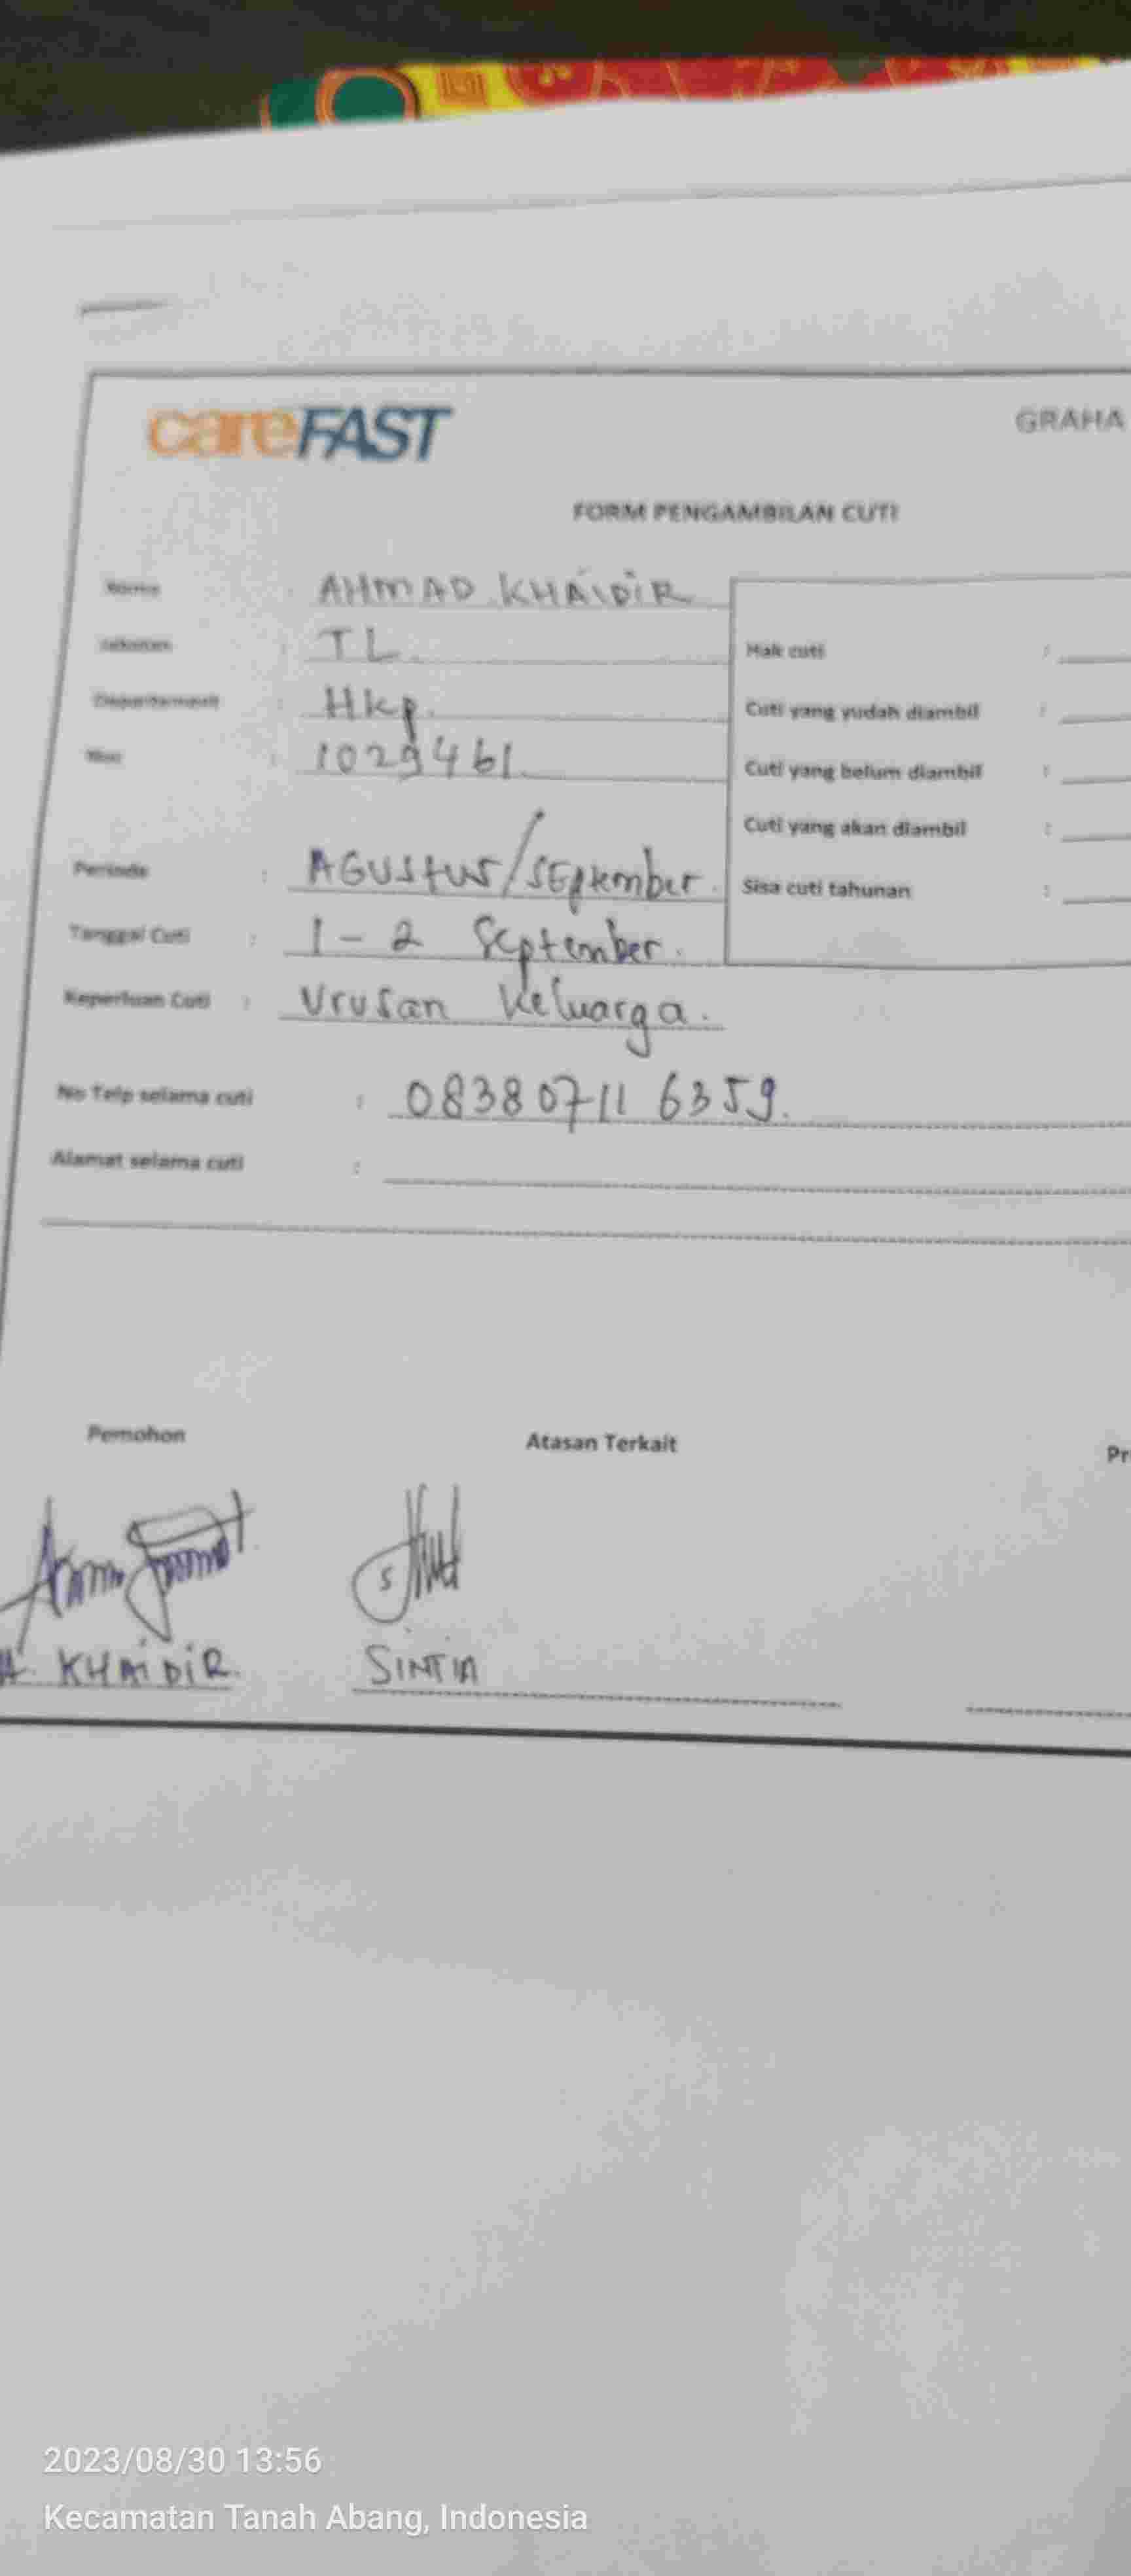 careFAST
GRAHA
FORM PENGAMBILAN CUTI
Nama : AHMAD KHAIDIR
Jabatan : TL
Departement : Hkp.
: 1029461.
Hak cuti :
Cuti yang yudah diambil :
Cuti yang belum diambil :
Cuti yang akan diambil :
Sisa cuti tahunan :
Periode : AGUSTUS/SEptember.
Tanggal Cuti : 1 - 2 September.
Keperluan Cuti : Urusan Keluarga.
No Telp selama cuti : 083807116359.
Alamat selama cuti :
Pemohon Atasan Terkait Pr
A. KHAIDIR. SINTIA
2023/08/30 13:56
Kecamatan Tanah Abang, Indonesia